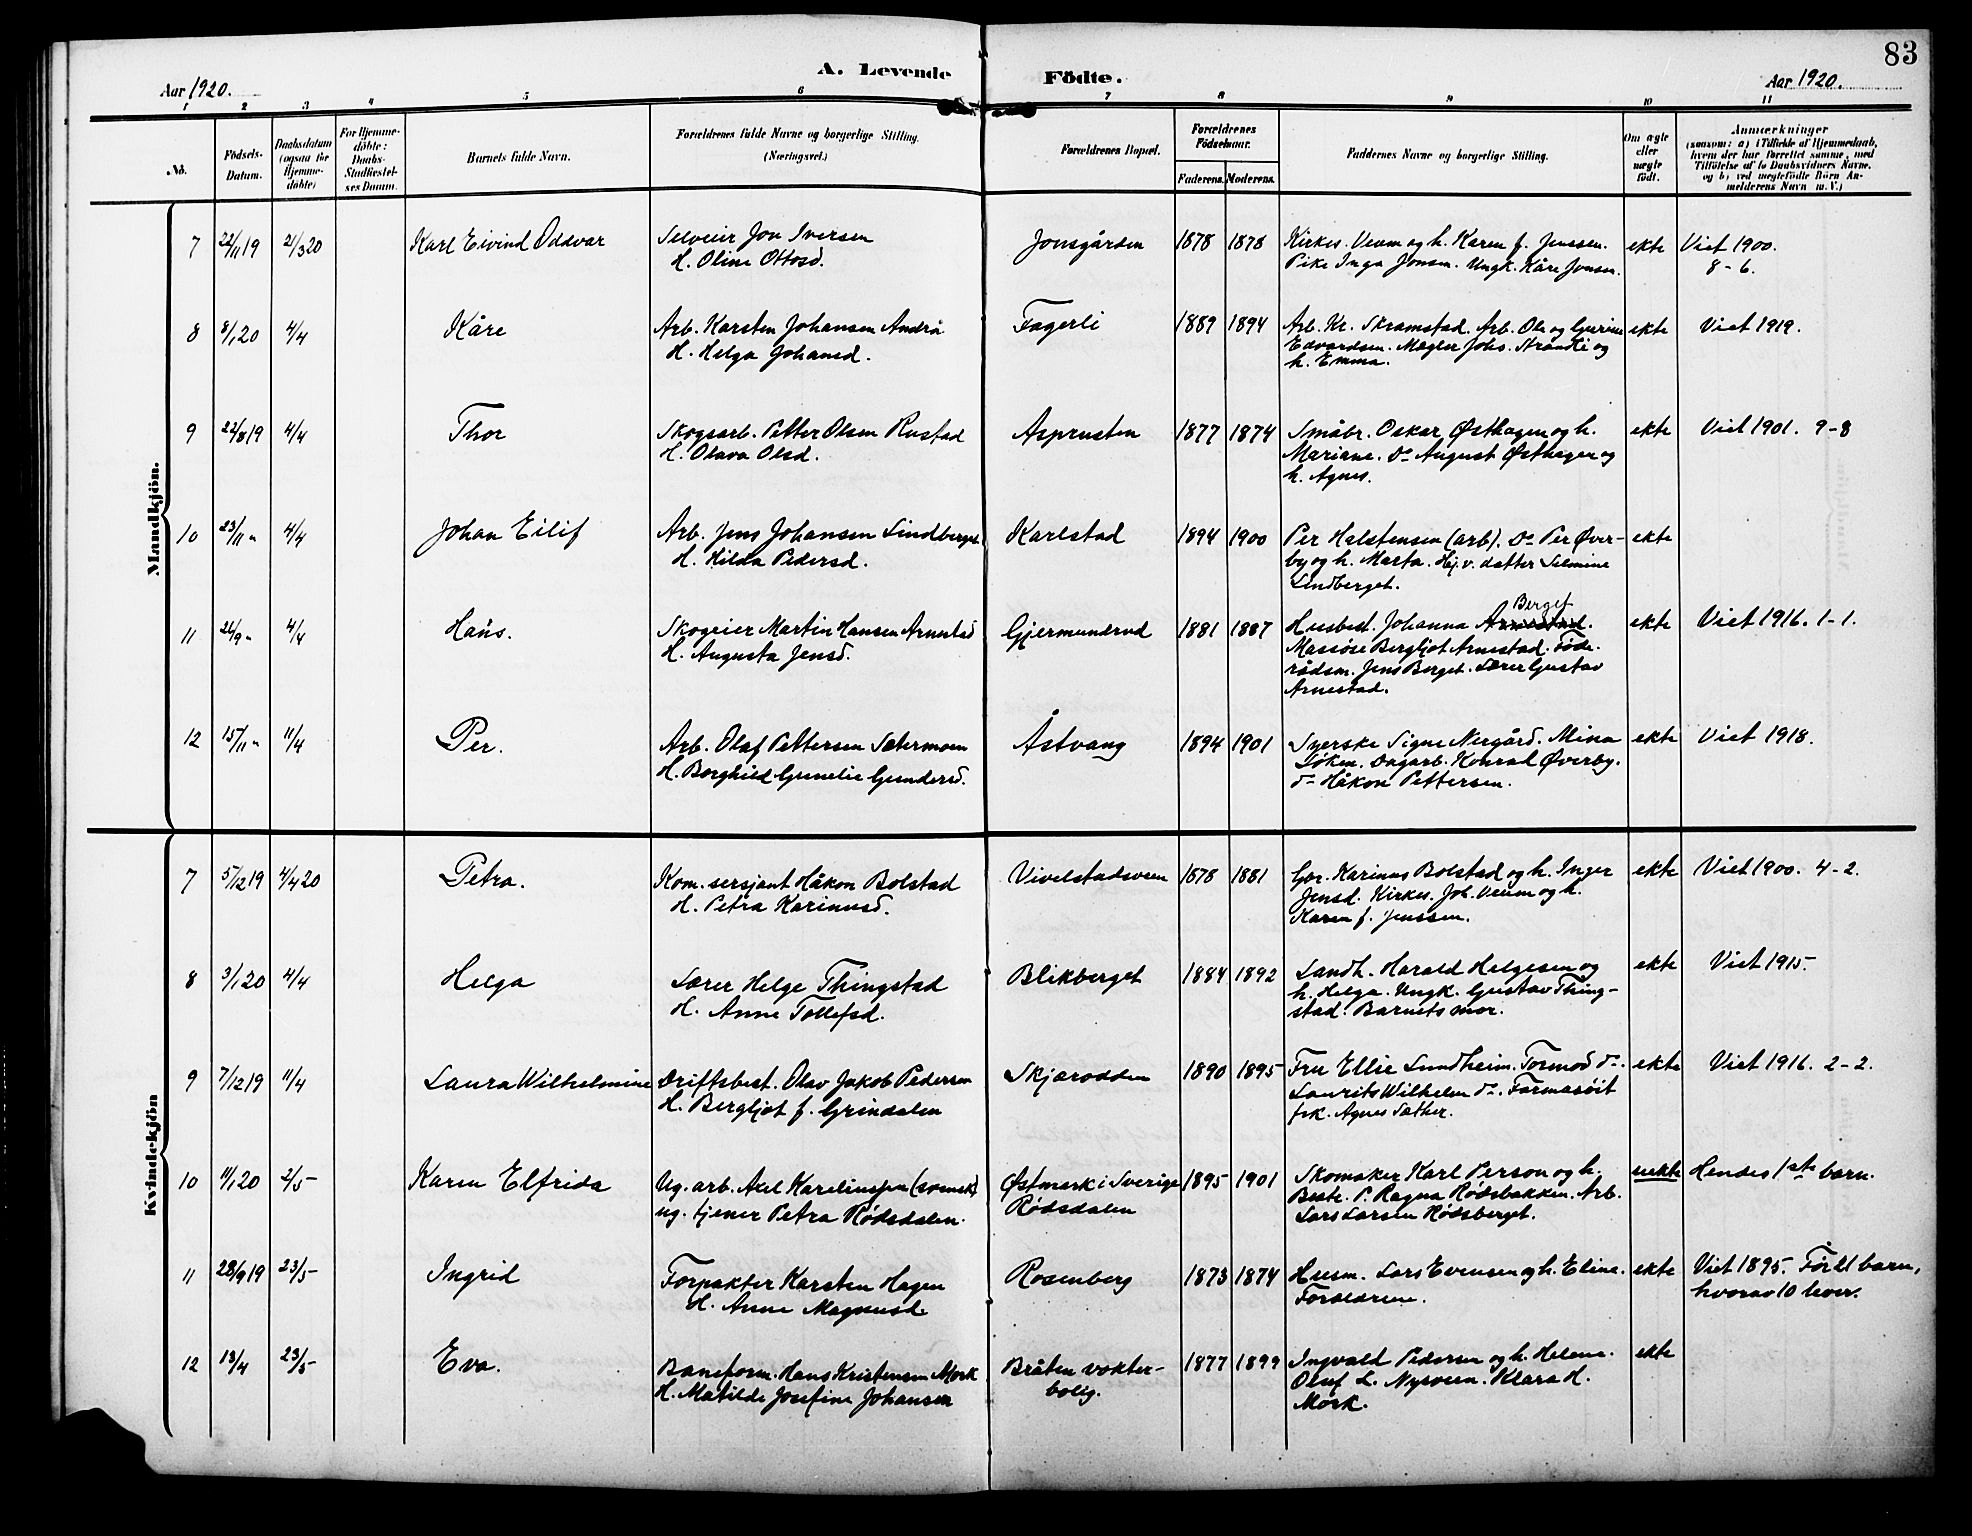 83
A. Levende Födte.
Aar 1920.
Aar 1920.
1 2 3 4 5 6 7 8 9 10 11
No.
Födsels-
Datum.
Daabsdatum
(ogsaa for
Hjemme-
döbte)
For Hjemme-
döbte:
Daabs-
Stadfæstel-
ses Datum.
Barnets fulde Navn.
Forældrenes fulde Navne og borgerlige Stilling.
(Næringsvei.)
Forældrenes Bopæl.
Forældrenes
Födselsaar.
Faderens. Moderens.
Faddernes Navne og borgerlige Stilling.
Om ægte
eller
uægte
födt.
Anmærkninger
(saasom: a) i Tilfælde af Hjemmedaab,
hvem der har forrettet samme, med
Tilföielse af to Daabsvidners Navne.
og b) ved uægtefödte Börn An-
melderens Navn m. V.)
Mandkjön.
7 22/11 19 21/3 20 Karl Eivind Oddvar Selveier Jon Iversen Jonsgården 1878 1878 Kirkes. Veum og h. Karen f. Jenssen. ekte Viet 1900.
H. Oline Ottosd. Pike Inga Jonsen. Ungk. Kåre Jonsen. 8-6.
8 8/1 20 4/4 Kåre Arb. Karsten Johansen Andrå Fagerli 1889 1894 Arb. Kr. Skramstad. Arb. Ole og Gurine ekte Viet 1919.
H. Helga Johansd. Edvardsen. Mægler Johs. Strandli og
h. Emma.
9 22/8 19 4/4 Thor Skogsarb. Petter Olsen Rustad Asprusten 1877 1874 Småbr. Oskar Østhagen og h. ekte Viet 1901. 9-8
H. Olava Olsd. Mariane. Do August Østhagen og
h. Agnes.
10 23/11 " 4/4 Johan Eilif Arb. Jens Johansen Lindberget Karlstad 1894 1900 Per Halstensen (arb). Do Per Øver- ekte
H. Hilda Pedersd. by og h. Marta. Hj. v. datter Selmine
Lindberget.
Berget
11 21/9 " 4/4 Hans. Skogeier Martin Hansen Arnestad Gjermundrud 1881 1887 Husbest. Johanna Arnestad. ekte Viet 1916. 1-1.
H. Augusta Jensd. Massøse Bergljot Arnestad. Føde-
rådsm. Jens Berget. Lærer Gustav
Arnestad.
12 15/11 " 11/4 Per. Arb. Olaf Pettersen Sætermoen Åstvang 1894 1901 Syerske Signe Nergård. Mina ekte Viet 1918.
H. Borghild Gunelie Gundersd. Løken. Dagarb. Konrad Øverby.
do Håkon Pettersen.
Kvindekjön
7 5/12 19 4/4 20 Petra. Kom. sersjant Håkon Bolstad Vivelstadsveen 1878 1881 Gbr. Karinus Bolstad og h. Inger ekte Viet 1900. 4-2.
H. Petra Karinusd. Jensd. Kirkes. Joh. Veum og h.
Karen f. Jenssen.
8 3/1 20 4/4 Helga Lærer Helge Thingstad Blikberget 1884 1892 Landh. Harald Helgesen og ekte Viet 1915.
H. Anne Tollefsd. h. Helga. Ungk. Gustav Thing-
stad. Barnets mor.
9 7/12 19 11/4 Laura Wilhelmine Driftsbest. Olav Jakob Pedersen Skjærodden 1890 1895 Fru Ellie Sundheim. Tormod do. ekte Viet 1916. 2-2.
H. Bergljot f. Grindalen Laurits Wilhelm do. Farmasøit
frk. Agnes Sæther.
10 11/1 20 2/5 Karen Elfrida Ug. arb. Axel Karelinsson (svensk) Østmark i Sverige 1895 1901 Skomaker Karl Person og h. uekte Hendes 1ste barn.
ug. tjener Petra Rødsdalen. Rødsdalen Beate. P. Ragna Rødsbakken. Arb.
Lars Larsen Rødsberget.
11 28/9 19 23/5 Ingrid Forpakter Karsten Hagen Rosenberg 1873 1874 Husm. Lars Evensen og h. Eline. ekte Viet 1895. Født barn,
H. Anne Magnusd. Forældrene. hvorav 10 lever.
12 13/4 23/5 Eva. Baneform. Hans Kristensen Mørk Bråten vokter- 1877 1899 Ingvald Pedersen og h. Helene. ekte
H. Matilde Josefine Johansen bolig. Oluf L. Nysveen. Klara H.
Mørk.